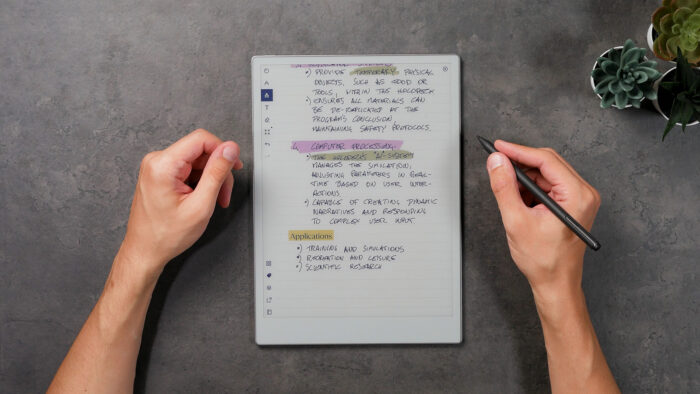 •) PROVIDE TEMPORARY PHYSICAL
OBJECTS, SUCH AS FOOD OR
TOOLS, WITHIN THE HOLODECK
•) ENSURES ALL MATERIALS CAN
BE DE-REPLICATED AT THE
PROGRAM'S CONCLUSION
MAINTAINING SAFETY PROTOCOLS.
4. COMPUTER PROCESSING
•) THE HOLODECK'S "AI" SYSTEM
MANAGES THE SIMULATION,
ADJUSTING PARAMETERS IN REAL-
TIME BASED ON USER INTER-
ACTIONS
•) CAPABLE OF CREATING DYNAMIC
NARRATIVES AND RESPONDING
TO COMPLEX USER INPUT.
Applications
•) TRAINING AND SIMULATIONS
•) RECREATION AND LEISURE
•) SCIENTIFIC RESEARCH